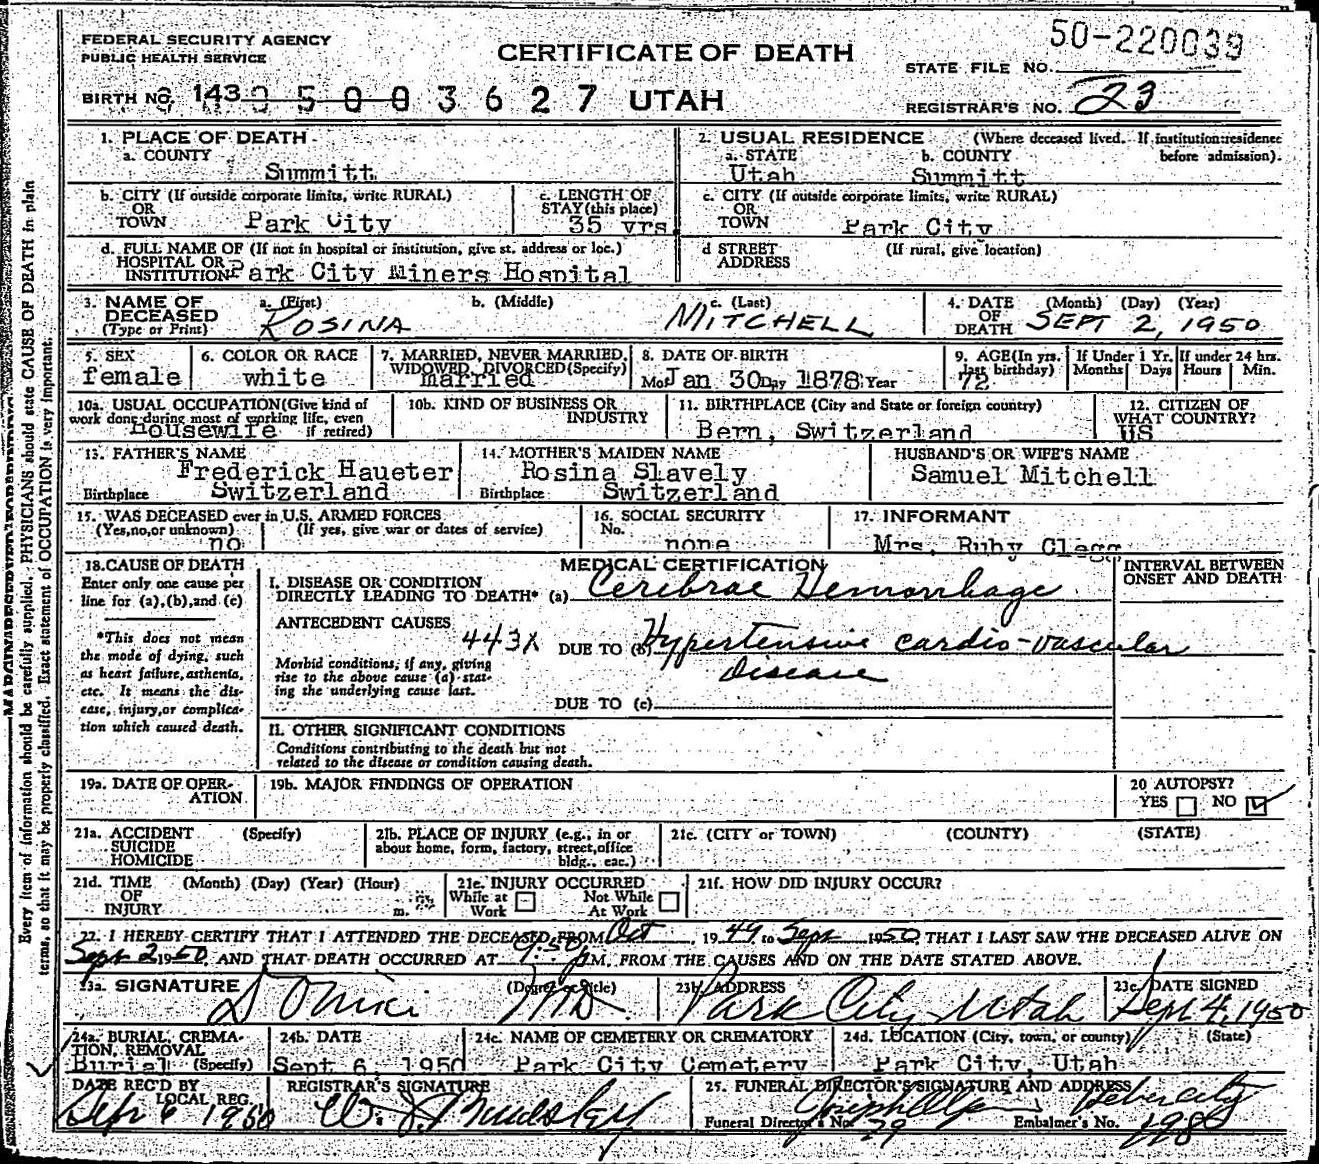 FEDERAL SECURITY AGENCY
PUBLIC HEALTH SERVICE
CERTIFICATE OF DEATH
50-220039
STATE FILE NO.
BIRTH NO. 143 UTAH
REGISTRAR'S NO. 23
1. PLACE OF DEATH
a. COUNTY
Summitt
2. USUAL RESIDENCE (Where deceased lived. If institution:residence before admission).
a. STATE b. COUNTY
Utah Summitt
b. CITY (If outside corporate limits, write RURAL)
OR
TOWN Park City
c. LENGTH OF
STAY (this place)
35 yrs.
c. CITY (If outside corporate limits, write RURAL)
OR
TOWN Park City
d. FULL NAME OF (If not in hospital or institution, give st. address or loc.)
HOSPITAL OR
INSTITUTION Park City Miners Hospital
d STREET (If rural, give location)
ADDRESS
3. NAME OF a. (First) b. (Middle) c. (Last)
DECEASED
(Type or Print) ROSINA MITCHELL
4. DATE (Month) (Day) (Year)
OF
DEATH SEPT 2, 1950
5. SEX
female
6. COLOR OR RACE
white
7. MARRIED, NEVER MARRIED,
WIDOWED, DIVORCED (Specify)
married
8. DATE OF BIRTH
Mo. Jan 30 Day 1878 Year
9. AGE (In yrs.
last birthday)
72
If Under 1 Yr.
Months Days
If under 24 hrs.
Hours Min.
10a. USUAL OCCUPATION (Give kind of
work done during most of working life, even
Housewife if retired)
10b. KIND OF BUSINESS OR
INDUSTRY
11. BIRTHPLACE (City and State or foreign country)
Bern, Switzerland
12. CITIZEN OF
WHAT COUNTRY?
US
13. FATHER'S NAME
Frederick Haueter
Birthplace Switzerland
14. MOTHER'S MAIDEN NAME
Rosina Slavely
Birthplace Switzerland
HUSBAND'S OR WIFE'S NAME
Samuel Mitchell
15. WAS DECEASED ever in U.S. ARMED FORCES
(Yes, no, or unknown) (If yes, give war or dates of service)
no
16. SOCIAL SECURITY
No.
none
17. INFORMANT
Mrs. Ruby Clegg
18. CAUSE OF DEATH
Enter only one cause per
line for (a), (b), and (c)
*This does not mean
the mode of dying, such
as heart failure, asthenia,
etc. It means the dis-
ease, injury, or complica-
tion which caused death.
MEDICAL CERTIFICATION
I. DISEASE OR CONDITION
DIRECTLY LEADING TO DEATH* (a) Cerebrae Hemorrhage
ANTECEDENT CAUSES
443X DUE TO (b) Hypertensive cardio-vascular
Disease
Morbid conditions, if any, giving
rise to the above cause (a) stat-
ing the underlying cause last.
DUE TO (c)
II. OTHER SIGNIFICANT CONDITIONS
Conditions contributing to the death but not
related to the disease or condition causing death.
INTERVAL BETWEEN
ONSET AND DEATH
19a. DATE OF OPER-
ATION
19b. MAJOR FINDINGS OF OPERATION
20 AUTOPSY?
YES NO
21a. ACCIDENT (Specify)
SUICIDE
HOMICIDE
21b. PLACE OF INJURY (e.g., in or
about home, form, factory, street, office
bldg., eac.)
21c. (CITY or TOWN) (COUNTY) (STATE)
21d. TIME (Month) (Day) (Year) (Hour)
OF
INJURY m.
21e. INJURY OCCURRED
While at Not While
Work At Work
21f. HOW DID INJURY OCCUR?
22. I HEREBY CERTIFY THAT I ATTENDED THE DECEASED FROM Oct, 1949 to Sept 1950, THAT I LAST SAW THE DECEASED ALIVE ON
Sept 2 1950 AND THAT DEATH OCCURRED AT M. FROM THE CAUSES AND ON THE DATE STATED ABOVE.
23a. SIGNATURE (Degree or Title) MD
23b. ADDRESS
Park City Utah
23c. DATE SIGNED
Sept 4, 1950
24a. BURIAL, CREMA-
TION, REMOVAL
Burial (Specify)
24b. DATE
Sept 6, 1950
24c. NAME OF CEMETERY OR CREMATORY
Park City Cemetery
24d. LOCATION (City, town, or county) (State)
Park City, Utah
DATE REC'D BY
LOCAL REG.
Sep 6 1950
REGISTRAR'S SIGNATURE
25. FUNERAL DIRECTOR'S SIGNATURE AND ADDRESS
Heber City
Funeral Director's No. 29 Embalmer's No.
Every item of information should be carefully supplied. PHYSICIANS should state CAUSE OF DEATH in plain
terms, so that it may be properly classified. Exact statement of OCCUPATION is very important.